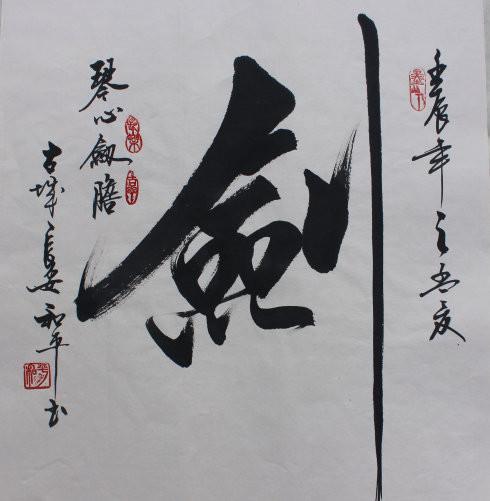 壬辰年之孟夏
劍
琴心劍膽
古城長安和平书